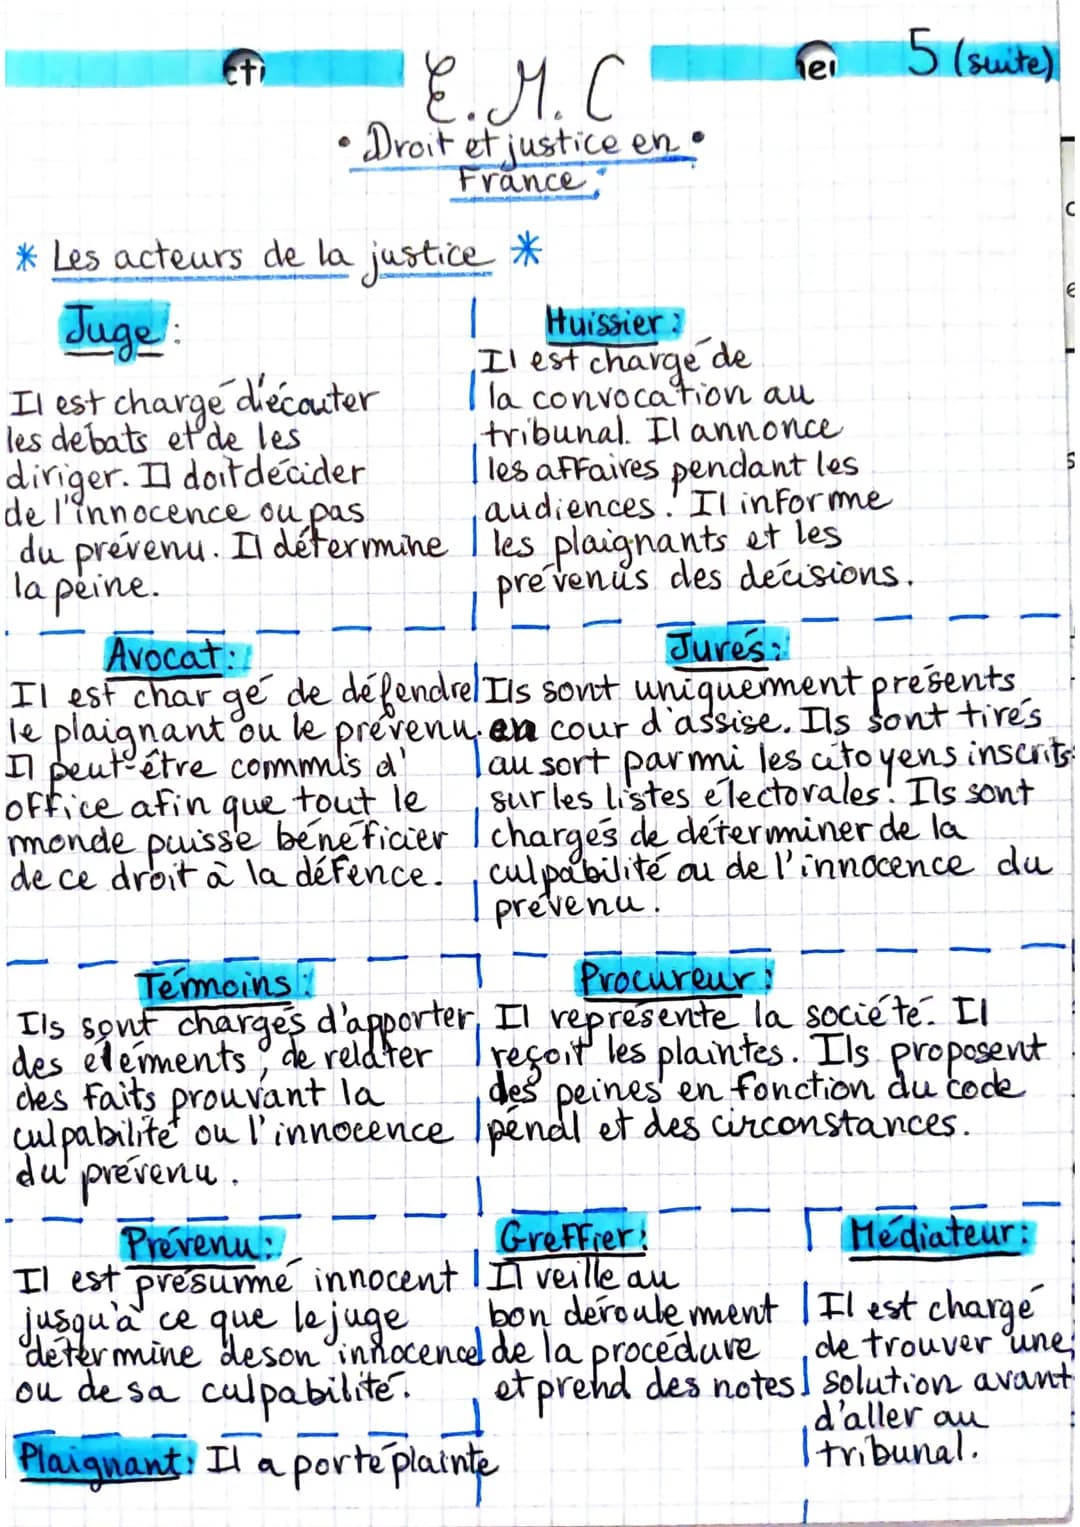 E.M.C
5 (suite)
• Droit et justice en •
France:
* Les acteurs de la justice *
Juge :
Il est chargé d'écouter
les débats et de les
diriger. Il doit décider
de l'innocence ou pas
du prévenu. Il détermine
la peine.
Huissier :
Il est chargé de
la convocation au
tribunal. Il annonce
les affaires pendant les
audiences. Il informe
les plaignants et les
prévenus des décisions.
Avocat :
Il est chargé de défendre
le plaignant ou le prévenu.
Il peut-être commis d'
office afin que tout le
monde puisse bénéficier
de ce droit à la défence.
Jurés :
Ils sont uniquement présents
en cour d'assise. Ils sont tirés
au sort parmi les citoyens inscrits
sur les listes électorales. Ils sont
chargés de déterminer de la
culpabilité ou de l'innocence du
prévenu.
Témoins :
Ils sont chargés d'apporter
des éléments, de relater
des faits prouvant la
culpabilité ou l'innocence
du prévenu.
Procureur :
Il représente la société. Il
reçoit les plaintes. Ils proposent
des peines en fonction du code
pénal et des circonstances.
Prévenu :
Il est présumé innocent
jusqu'à ce que le juge
détermine de son innocence
ou de sa culpabilité.
Greffier :
Il veille au
bon déroulement
de la procédure
et prend des notes
Médiateur :
Il est chargé
de trouver une
solution avant
d'aller au
tribunal.
Plaignant : Il a porté plainte